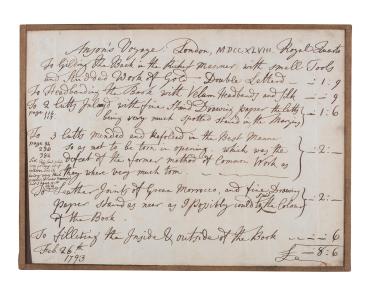 Anson's Voyage. London, MDCCXLVIII. Royal Quarto
To Gilding the Back in the Richest Manner with small Tools
and Studded Work of Gold - Double Letterd - 1 : 9
To Headbanding the Book with Velum Headband and silk - 9
To 2 Lefts with fine Hand Drawing paper the Lefts - 1 : 6
page 114. being very much spotted stand in the Margins
To 3 Lefts Mended and Refolded in the Best Manner
page
so as not to be torn in opening - which was the - 2 : -
defect of the former method of Common Work as
they where very much torn
To Leather Joints of Green Morrocco, and fine Drawing
Paper Stand as near as I Possibly could to the Colour - 2 : -
of the Book
To filleting the Inside & outside of the Book - 6
Feb. 26th £ - 8 : 6
1793